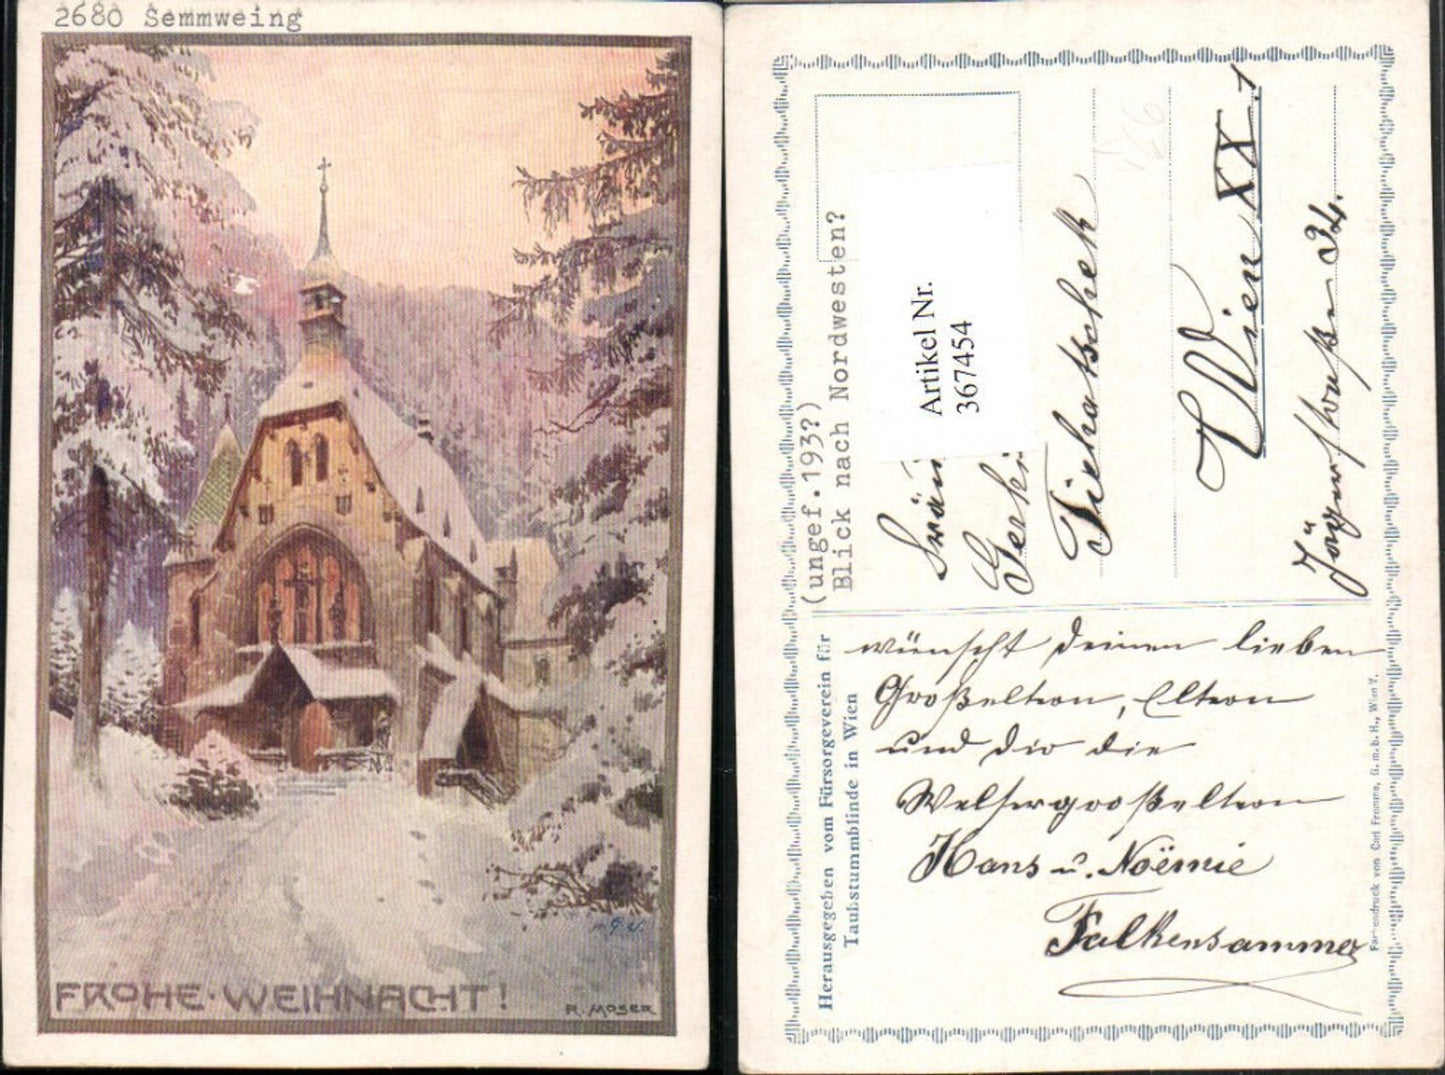 2680 Semmweing
FROHE·WEIHNACHT!
R. MOSER
(ungef.193?)
Blick nach Nordwesten?
Artikel Nr.
367454
Gerti
Tichatschek
Wien XX.1
Jägerstraße 34.
wünscht Deinen lieben
Großeltern, Eltern
und Dir die
Welsergroßeltern
Hans u. Noëmie
Falkensammer
Herausgegeben vom Fürsorgeverein für
Taubstummblinde in Wien
Farbendruck von Carl Fromme, G.m.b.H., Wien V.